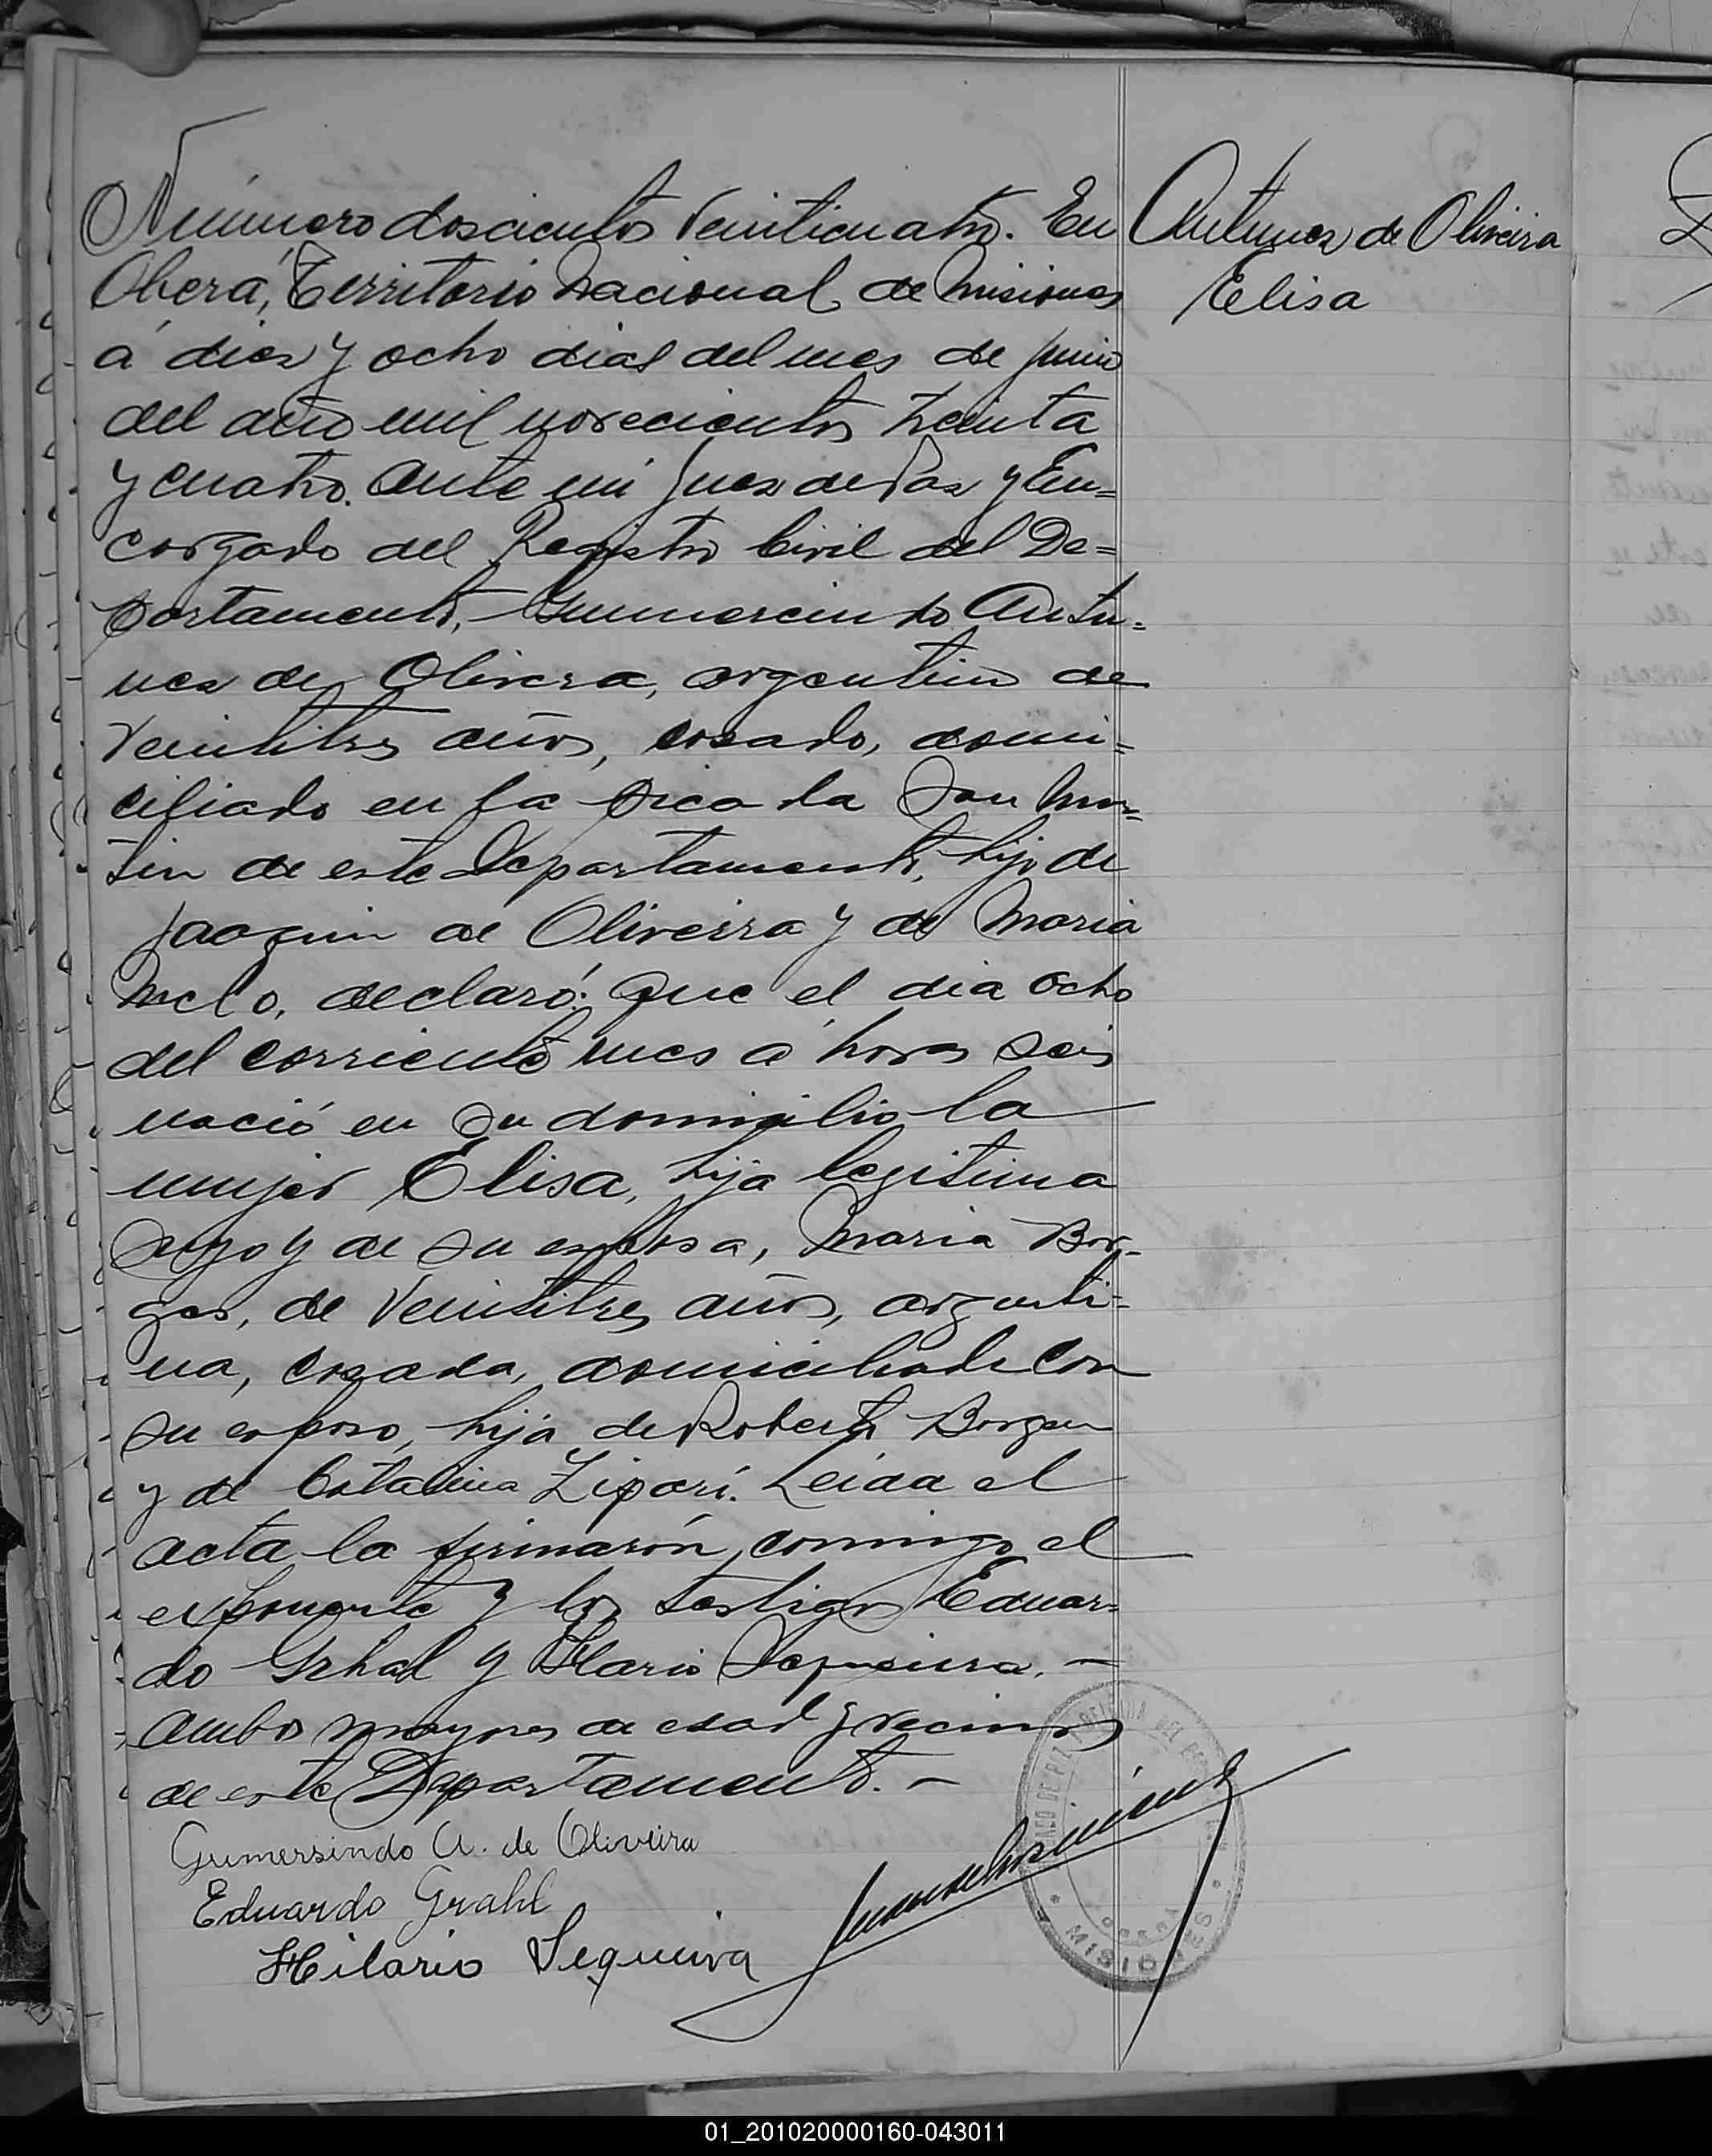 Número doscientos veinticuatro. En
Oberá, Territorio Nacional de Misiones
á diez y ocho dias del mes de junio
del año mil novecientos treinta
y cuatro. Ante mi Juez de Paz y En=
cargado del Registro Civil del De=
partamento, Gumercindo Antu=
nez de Olivera, argentino de
veintitres años, casado, domi=
ciliado en la picada San Mar=
tin de este Departamento, hijo de
Joaquin de Oliveira y de Maria
Melo, declaró: Que el dia ocho
del corriente mes a horas seis
nació en su domicilio la
mujer Elisa, hija legitima
suya y de su esposa, Maria Bor-
ges, de veintitres años, argenti-
na, casada, domiciliada con
su esposo, hija de Roberto Borges
y de Catalina Liparí. Leida el
acta la firmarón conmigo el
exponente y los testigos Eduar=
do Grhal y Ilario Sequeira. —
Ambos mayores de edad y vecinos
de este Departamento. —
Gumersindo A. de Oliveira
Eduardo Grahl
Hilario Sequeira
Antunez de Oliveira
Elisa
MISIONES
01_201020000160-043011